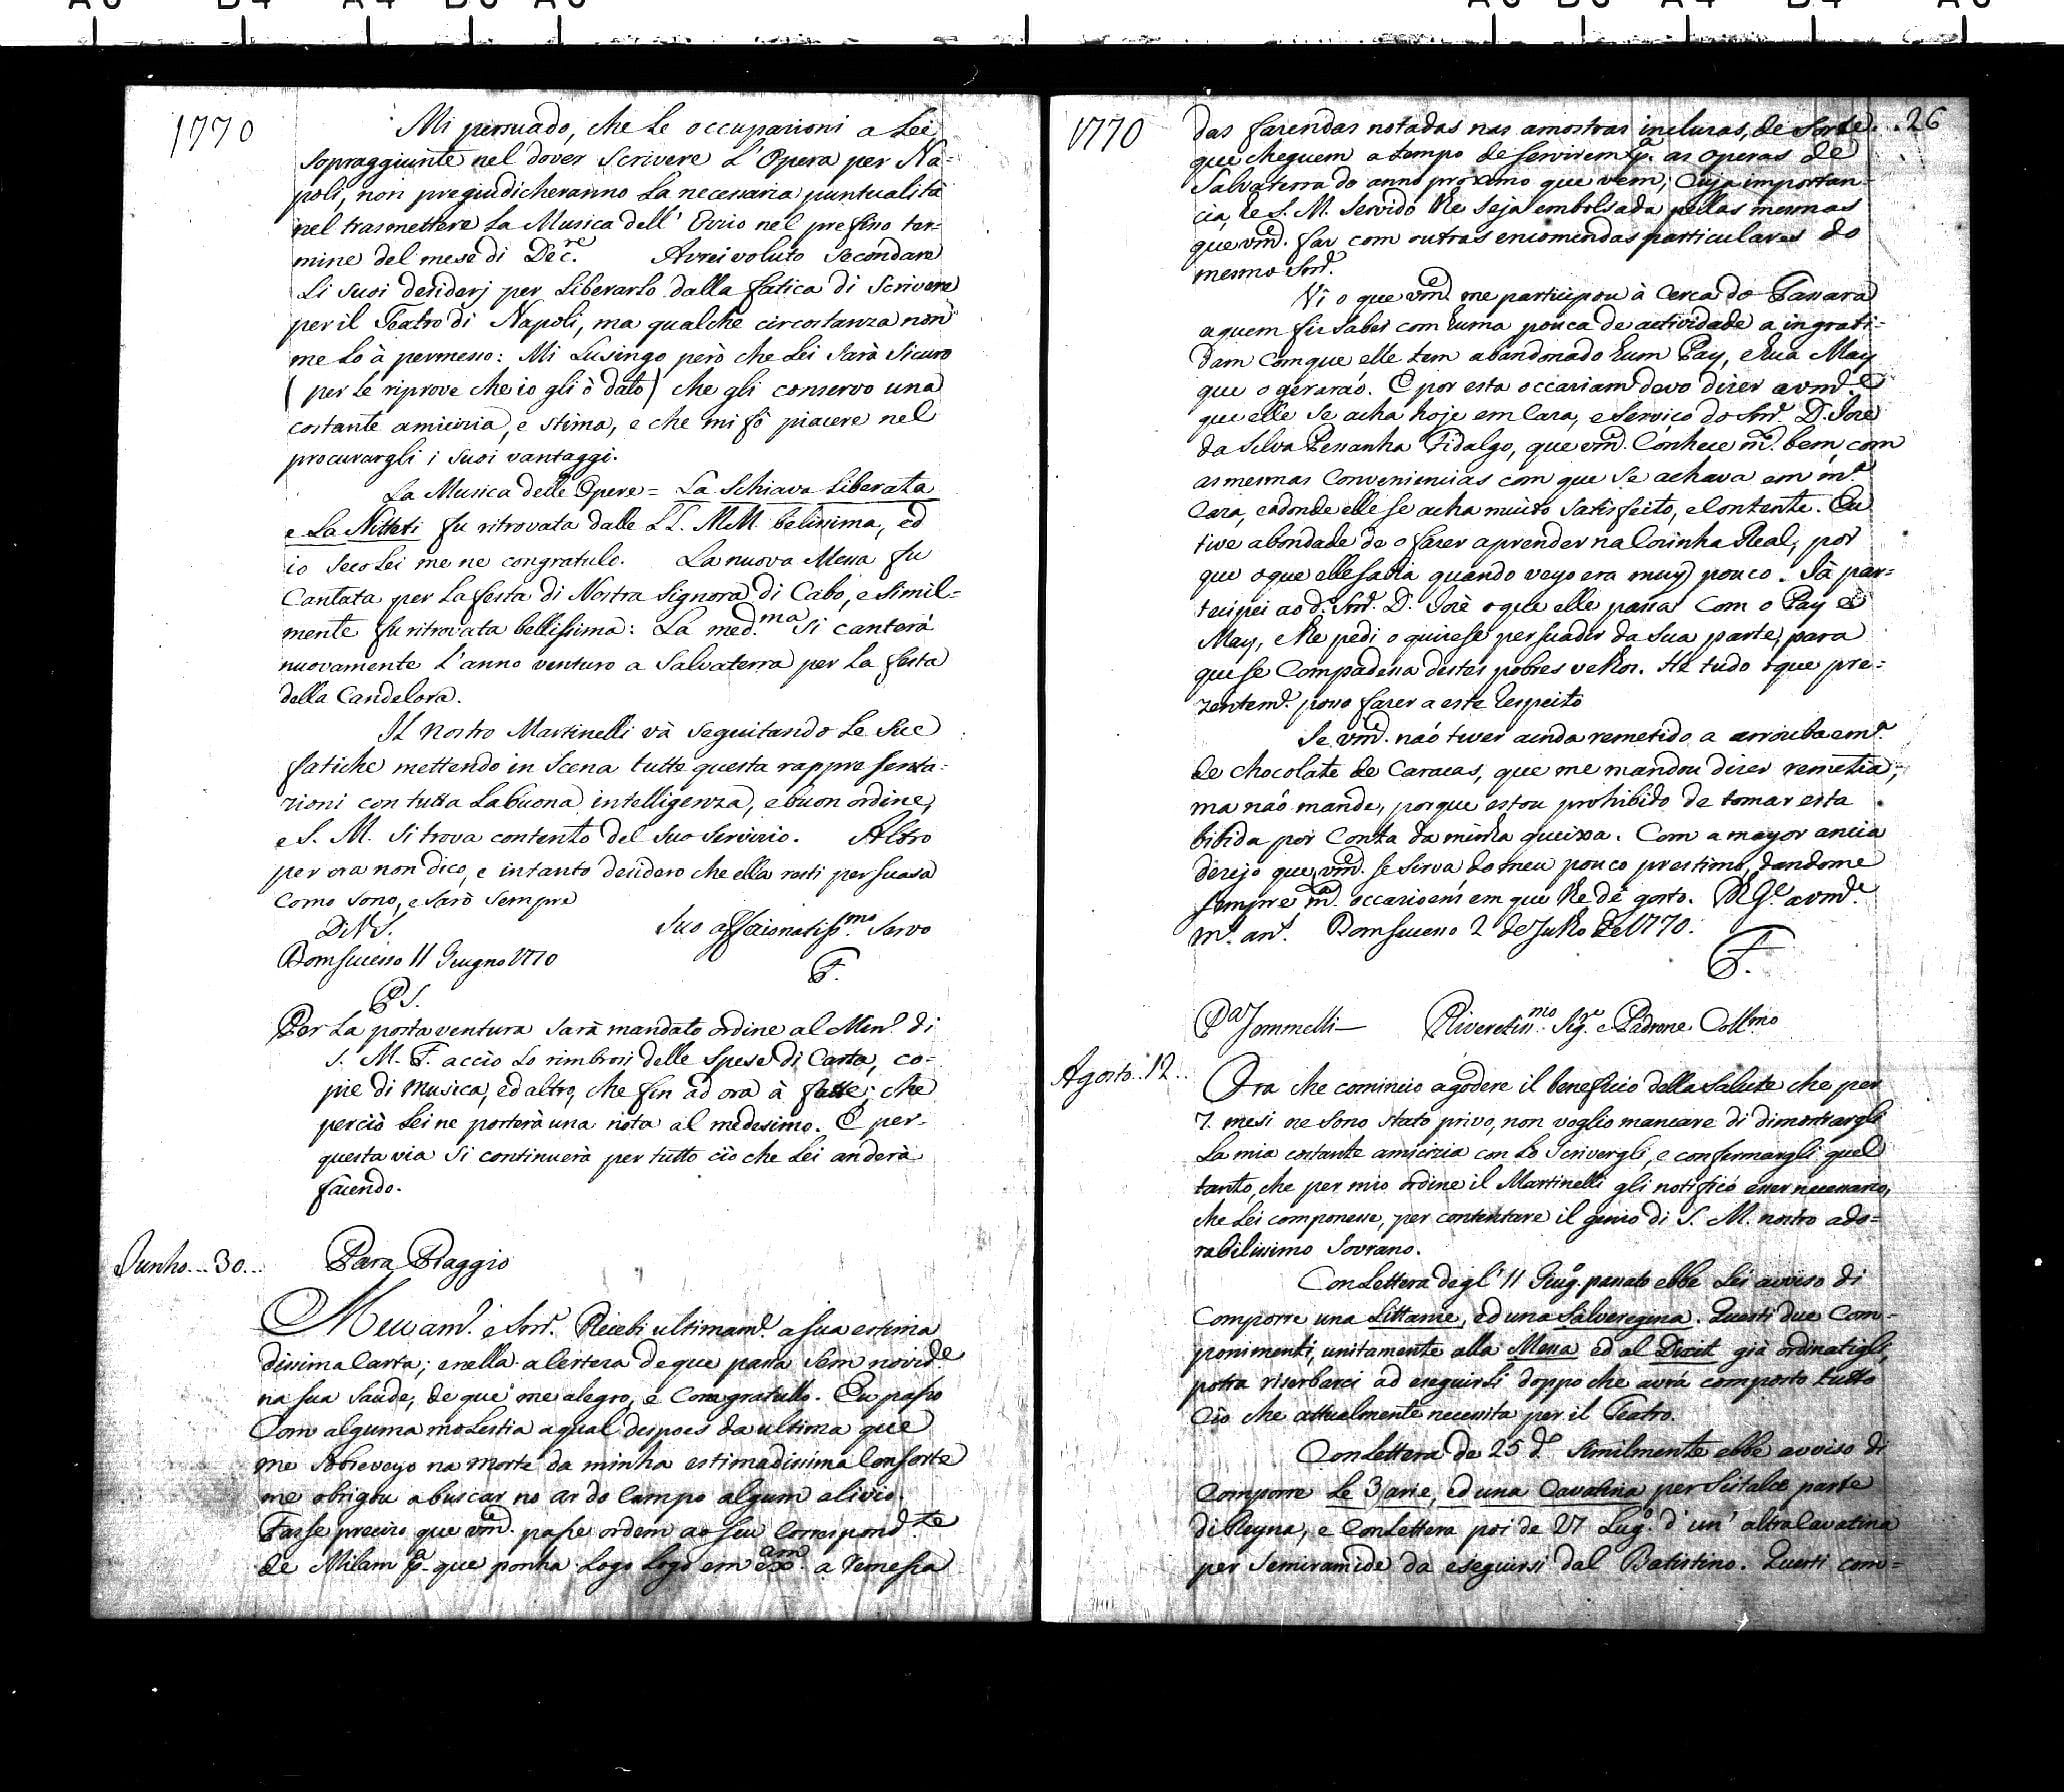 1770
Mi persuado, che le occupazioni a Lei
sopraggiunte nel dover scrivere l'Opera per Na=
poli, non pregiudicheranno la necessaria puntualità
nel trasmettere la Musica dell' Ezio nel prefisso ter=
mine del mese di Dec.re Avrei voluto secondare
li suoi desiderj per liberarlo dalla fatica di scrivere
per il Teatro di Napoli, ma qualche circostanza non
me lo à permesso: Mi lusingo però che Lei sarà sicuro
(per le riprove che io gli ò dato) che gli conservo una
costante amicizia, e stima, e che mi fò piacere nel
procurargli i suoi vantaggi.
La Musica delle Opere = La Schiava liberata
e La Nitteti fu ritrovata dalle LL. MM. belissima, ed
io seco Lei me ne congratulo. La nuova Messa fu
Cantata per la festa di Nostra Signora di Cabo, e simil=
mente fu ritrovata bellissima: La med.ma si canterà
nuovamente l'anno venturo a Salvaterra per la festa
della Candelora.
Il nostro Martinelli và seguitando le sue
fatiche mettendo in scena tutte questa rappresenta=
zioni con tutta la buona intelligenza, e buon ordine,
e S. M. si trova contento del suo servizio. Altro
per ora non dico, e intanto desidero che ella resti persuasa
como sono, e sarò sempre
Di V S. Suo affezionatiss.mo Servo
Bomsucesso 11 Giugno 1770 F.
P S.
Per la posta ventura sarà mandato ordine al Min.o di
S. M. F. acciò lo rimborsi delle spese di Carta, co=
pie di musica, ed altro, che fin ad ora à fatte; che
perciò Lei ne porterà una nota al medesimo. E per=
questa via si continuerà per tutto ciò che Lei anderà
facendo.
Junho...30... Para Piaggio
Meu am.o e Snr.r Recebi ultimam.e a sua estima
dissima Carta; e nella a lerteza de que passa sem novid.de
na sua saude, de que me alegro, e congratullo. Eu passo
Com alguma molestia a qual despoes da ultima que
me sobreveyo na morte da minha estimadissima Consorte
me obrigou a buscar no ar do Campo algum alivio.
Fasse preciso que vm.ce passe ordem ao seu Correspond.te
de Milam p.a que ponha logo logo em exam. a remessa
1770 26
das fazendas notadas nas amostras incluzas, de sorte
que cheguem a tempo de servirem p.a as operas de
Salvaterra do anno proximo que vem; cuja importan=
cia, he S. M. servido lhe seja embolsada pellas mesmas
que vm.ce faz com outras encomendas particulares do
mesmo Snr.r
Vi o que vm.ce me participou à cerca do Passara
a quem fiz saber com huma pouca de actividade a ingrati=
dam com que elle tem abandonado hum Pay, e hua May
que o geraraó. E por esta occaziam devo dizer a vm.ce
que elle se acha hoje em Caza, e serviço do Snr.r D. Jozé
da Silva Pessanha Fidalgo, que vm.ce Conhece m.to bem, com
as mesmas Conveniencias com que se achava em m.a
Caza, e adonde elle se acha muito satisfeito, e Contente. Eu
tive a bondade de o fazer aprender na Cozinha Real, por
que o que elle sabia quando veyo era muy pouco. Já par=
tecipei ao d.o Snr.r D. Jozè o que elle passa com o Pay e
May, e lhe pedi o quizese persuadir da sua parte, para
que se Compadessa destes pobres velhos. Hé tudo o que pre=
zentem.e posso fazer a este respeito
Se vm.ce naó tiver ainda remetido a arrouba e m.a
de chocolate de Caracas, que me mandou dizer remetia,
ma naó mande, porque estou prohibido de tomar esta
bibida por Conta da minha queixa. Com a mayor ancia
dezejo que vm.ce se sirva do meu pouco prestimo, dandome
sempre m.as occazioens em que lhe dè gosto. D. G.e a vm.ce
m.s an.s Bomsucesso 2 de Julho de 1770.
F.
P.a Jommelli— Riveretiss.mo Sig.e e Padrone Coll.mo
Agosto..12.. Ora che comincio a godere il beneficio della salute che per
7. mesi ne sono stato privo, non voglio mancare di dimostrargli
la mia costante amicizia con lo scrivergli, e confermargli quel
tanto, che per mio ordine il Martinelli gli notificó esser necessario,
che Lei componesse, per contentare il genio di S. M. nostro ado=
rabilissimo Sovrano.
Con Lettera degl' 11 Giug.o passato ebbe Lei avviso di
Comporre una Littanie, ed una Salveregina. Questi due Com=
ponimenti, unitamente alla Messa ed al Dixit già ordinatigli,
potra riserbarsi ad eseguirli doppo che avrà composto tutto
Ciò che attualmente necessita per il Teatro.
Con Lettera de 25 d.o similmente ebbe avviso di
Comporre Le 3 arie, ed una Cavatina per Scitalce parte
di Reyna, e Con Lettera poi de 27 Lug.o d' un' altra Cavatina
per Semiramide da eseguirsi dal Batistino. Questi com=